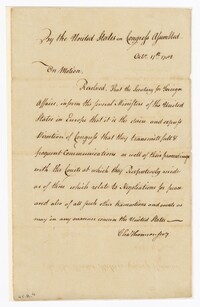 By the United States in Congress Assembled
Octr. 17th. 1785
On Motion,
Resolved, That the Secretary for Foreign
Affairs, inform the several Ministers of the United
States in Europe that it is the desire and express
direction of Congress that they transmit full &
frequent Communications as well of their proceedings
with the Courts at which they Respectively reside
as of those which relate to Negotiations
and also of all such other transactions and events as
may in any manner concern the United States
Cha Thomson Secy